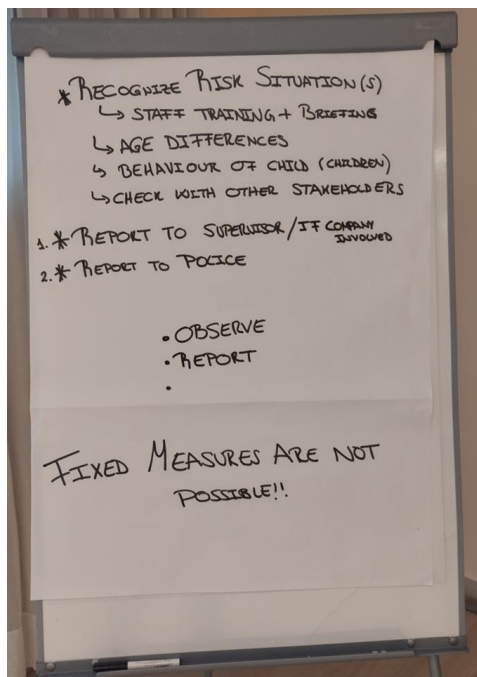 * RECOGNIZE RISK SITUATION(S)
↳ STAFF TRAINING + BRIEFING
↳ AGE DIFFERENCES
↳ BEHAVIOUR OF CHILD (CHILDREN)
↳ CHECK WITH OTHER STAKEHOLDERS
1. * REPORT TO SUPERVISOR / IF COMPANY
INVOLVED
2. * REPORT TO POLICE
• OBSERVE
• REPORT
•
FIXED MEASURES ARE NOT
POSSIBLE!!